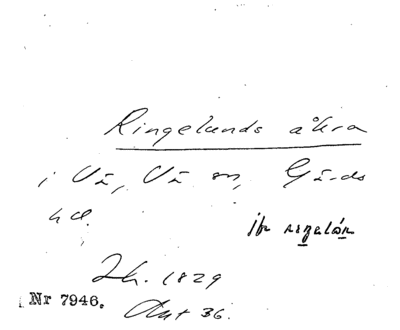 Ringelunds åkra
i Vä, Vä sn, Gärds
hd.
jfr ringelån
Lh. 1829
Nr 7946.
Akt 36.